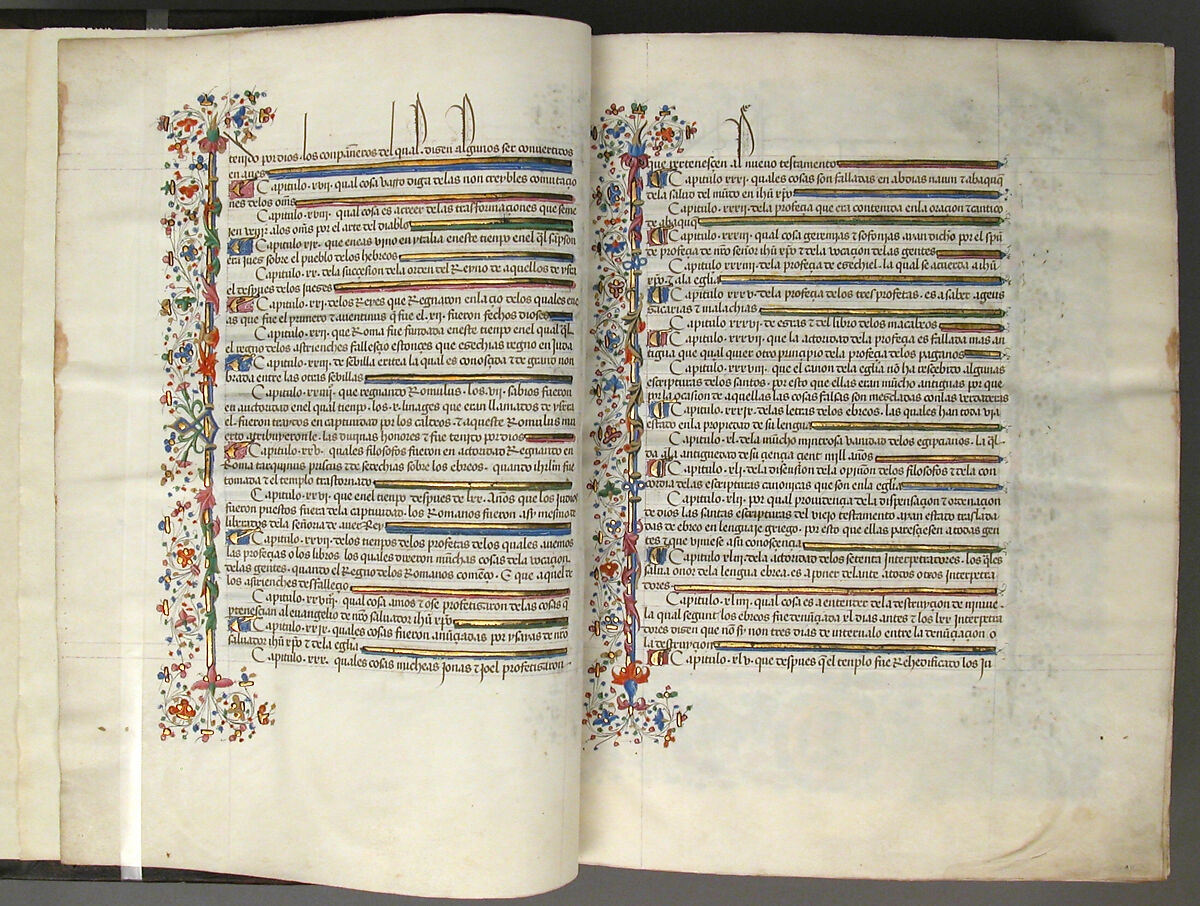 tenido por dios. los conpañeros del qual. disen algunos ser convertidos
en aues
Capitulo. xvii. qual cosa varro diga delas non creybles comutacio
nes delos oms
Capitulo. xviii. qual cosa es a creer delas trasformaciones que seme
jen venir alos oms por el arte del diablo
Capitulo. xix. que eneas vino en ytalia en este tiempo enel ql sanpson
era jues sobre el pueblo delos hebreos
Capitulo. xx. dela succession dela orden del Reyno de aquellos de ysra
el despues delos jueses
Capitulo. xxi. delos Reyes que Regnaron en lacio delos quales ene
as que fue el primero & auentinus q fue el. xii. fueron fechos dioses
Capitulo. xxii. que Roma fue fundada en este tiempo enel qual ql
el regno delos astrienches fallescio estonces que esechias regno en juda
Capitulo. xxiii. de sebilla eritea la qual es conosçida & de grand non
brada entre las otras sebillas
Capitulo. xxiiii. que regnando Romulus. los. vii. sabios fueron
en auctoridad enel qual tiempo. los. x. linages que eran llamados de ysra
el. fueron traydos en captiuidad por los caldeos. & aqueste Romulus mu
erto atribuyeron le. las diuinas honores & fue tenido por dios
Capitulo. xxv. quales filosofos fueron en actoridad Regnando en
Roma tarquinus priscus & sedechias sobre los ebreos. quando ihrlm fue
tomada & el templo trastornado
Capitulo. xxvi. que enel tiempo despues de lxx. Años que los judios
fueron puestos fuera dela captiuidad. los Romanos fueron asi mesmo de
librados dela señoria de auer Rey
Capitulo. xxvii. delos tiempos delos profetas delos quales auemos
las profecias o los libros. los quales dixeron munchas cosas dela vocacion
delas gentes. quando el Regno delos Romanos començo. E que aquel de
los astrienches desfallecio
Capitulo. xxviii. qual cosa amos & ose profetisaron delas cosas q
ptenescian al euangelio de nro saluador ihu xpo
Capitulo. xxix. quales cosas fueron anunçiadas por ysayas de nro
saluador ihu xpo & dela eglia
Capitulo. xxx. quales cosas micheas jonas & joel profetisaron
que pertenescen al nueuo testamento
Capitulo. xxxi. quales cosas son falladas en abdias naum & abaquq
dela salud del mundo en ihu xpo
Capitulo. xxxii. dela profecia que era contenida enla oracion & cantico
de abaquq
Capitulo. xxxiii. qual cosa geremias & sofonias. ayan dicho por el spu
de profecia de nro señor ihu xpo & dela vocacion delas gentes
Capitulo. xxxiiii. dela profecia de esechiel. la qual se acuerda a ihu
xpo. & ala eglia
Capitulo. xxxv. dela profecia delos tres profetas. es a saber ageus
zacarias & malachias
Capitulo. xxxvi. de esdras & del libro delos macabeos
Capitulo. xxxvii. que la actoridad dela profecia es fallada mas an
tigua que qual quier otro principio dela profecia delos paganos
Capitulo. xxxviii. que el canon dela eglia no ha rescebido algunas
escripturas delos santos. por esto que ellas eran mucho antiguas por que
por la ocasion de aquellas las cosas falsas son mescladas con las verdaderas
Capitulo. xxxix. delas letras delos ebreos. las quales han toda via
estado en la propiedad de su lengua
Capitulo. xl. dela mucho mintrosa vanidad delos egipcianos. la ql
da ala antiguedad de su ciencia cient mill años
Capitulo. xli. dela disension dela oppinion delos filosofos & dela con
cordia delas escripturas canonicas que son en la eglia
Capitulo. xlii. por qual prouidencia dela dispensacion & ordenacion
de dios las santas escripturas del viejo testamento. ayan estado traslada
das de ebreo en lenguaje griego. por esto que ellas paresçiesen a todas gen
tes & que viniese a su conoscencia
Capitulo. xliii. dela actoridad delos setenta interpretadores. los qles
salua onor dela lengua ebrea. es a poner delante. a todos otros interpreta
dores
Capitulo. xliiii. qual cosa es a entender dela destruycion de niniue.
la qual segunt los ebreos fue denunciada xl dias antes & los lxx interpreta
dores disen que no sy non tres dias de interualo entre la denunciacion o
la destruycion
Capitulo. xlv. que despues q el templo fue Rehedificado los ju